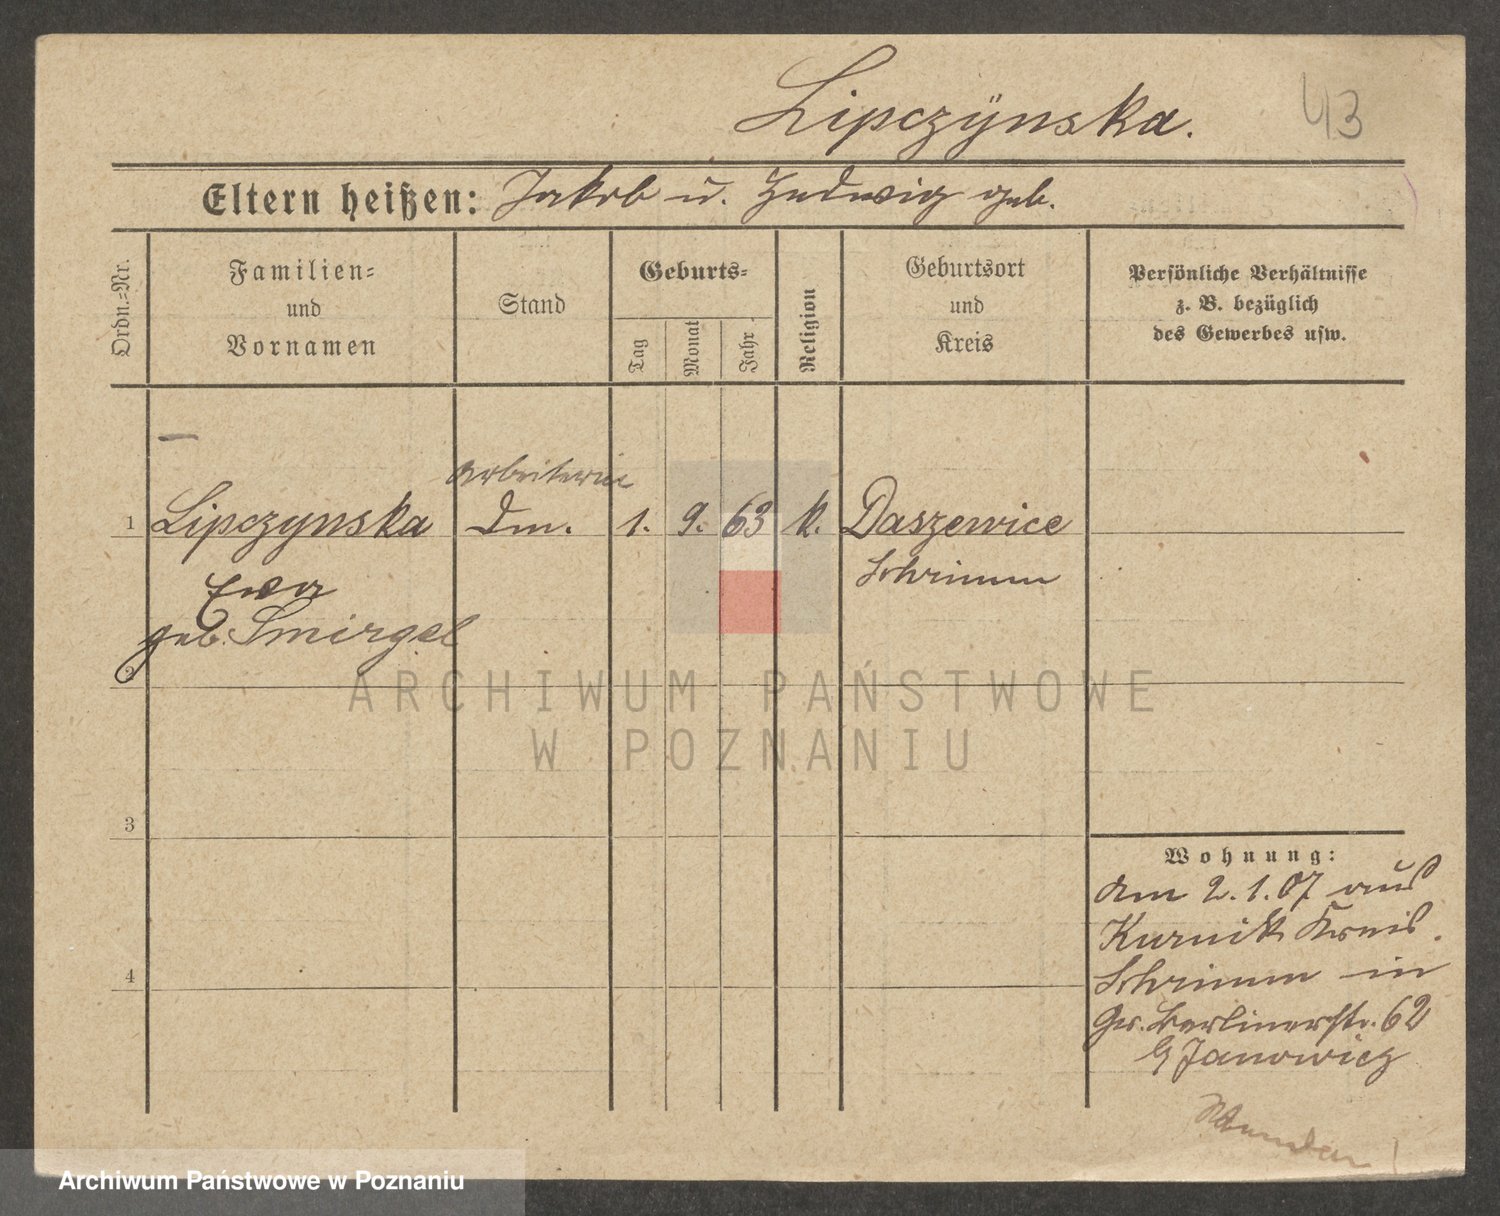 Lipczÿnska.
43
Eltern heißen: Jakob u. Hedwig geb.
Ordn.=Nr.
Familien=
und
Vornamen
Stand
Geburts=
Tag
Monat
Jahr
Religion
Geburtsort
und
Kreis
Persönliche Verhältnisse
z. B. bezüglich
des Gewerbes usw.
Arbeiterin
1 Lipczynska
1. 9. 63 k. Daszewice
Ewa
Schrimm
geb. Smirgel
2
3
4
Wohnung:
Am 2.1.07 aus
Kurnik Kreis
Schrimm in
Gr. Berlinerstr. 62
Janowicz
ARCHIWUM PAŃSTWOWE
W POZNANIU
Archiwum Państwowe w Poznaniu